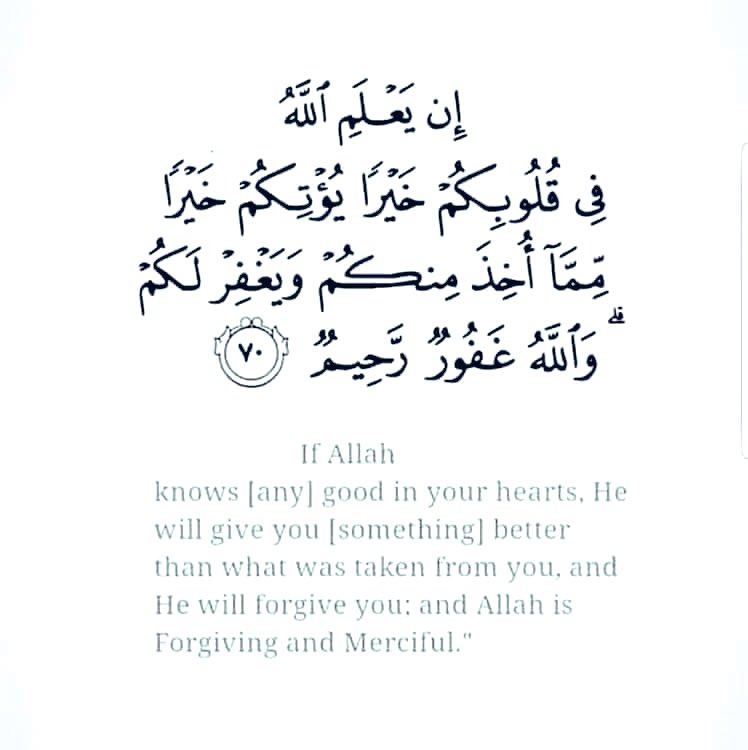 إِن يَعْلَمِ ٱللَّهُ
فِى قُلُوبِكُمْ خَيْرًا يُؤْتِكُمْ خَيْرًا
مِّمَّآ أُخِذَ مِنكُمْ وَيَغْفِرْ لَكُمْ
ۗ وَٱللَّهُ غَفُورٌ رَّحِيمٌ ٧٠
If Allah
knows [any] good in your hearts, He
will give you [something] better
than what was taken from you, and
He will forgive you; and Allah is
Forgiving and Merciful."